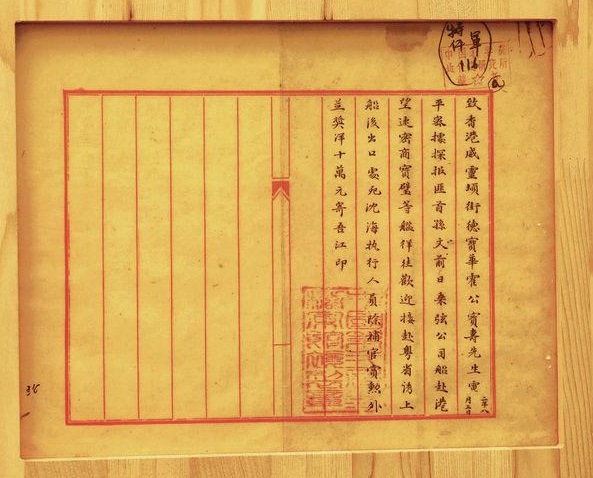 致香港威靈頓街德寶華霍公寶壽先生電
二年八月三日
平密據探报匪首孫文前日乘弦公司船赴港
望速密商寶璧等艦佯往歡迎接赴粵省誘上
船後出口處死沈海执行人員除補官賞勳外
並獎洋十萬元寄吾江印
特件
116